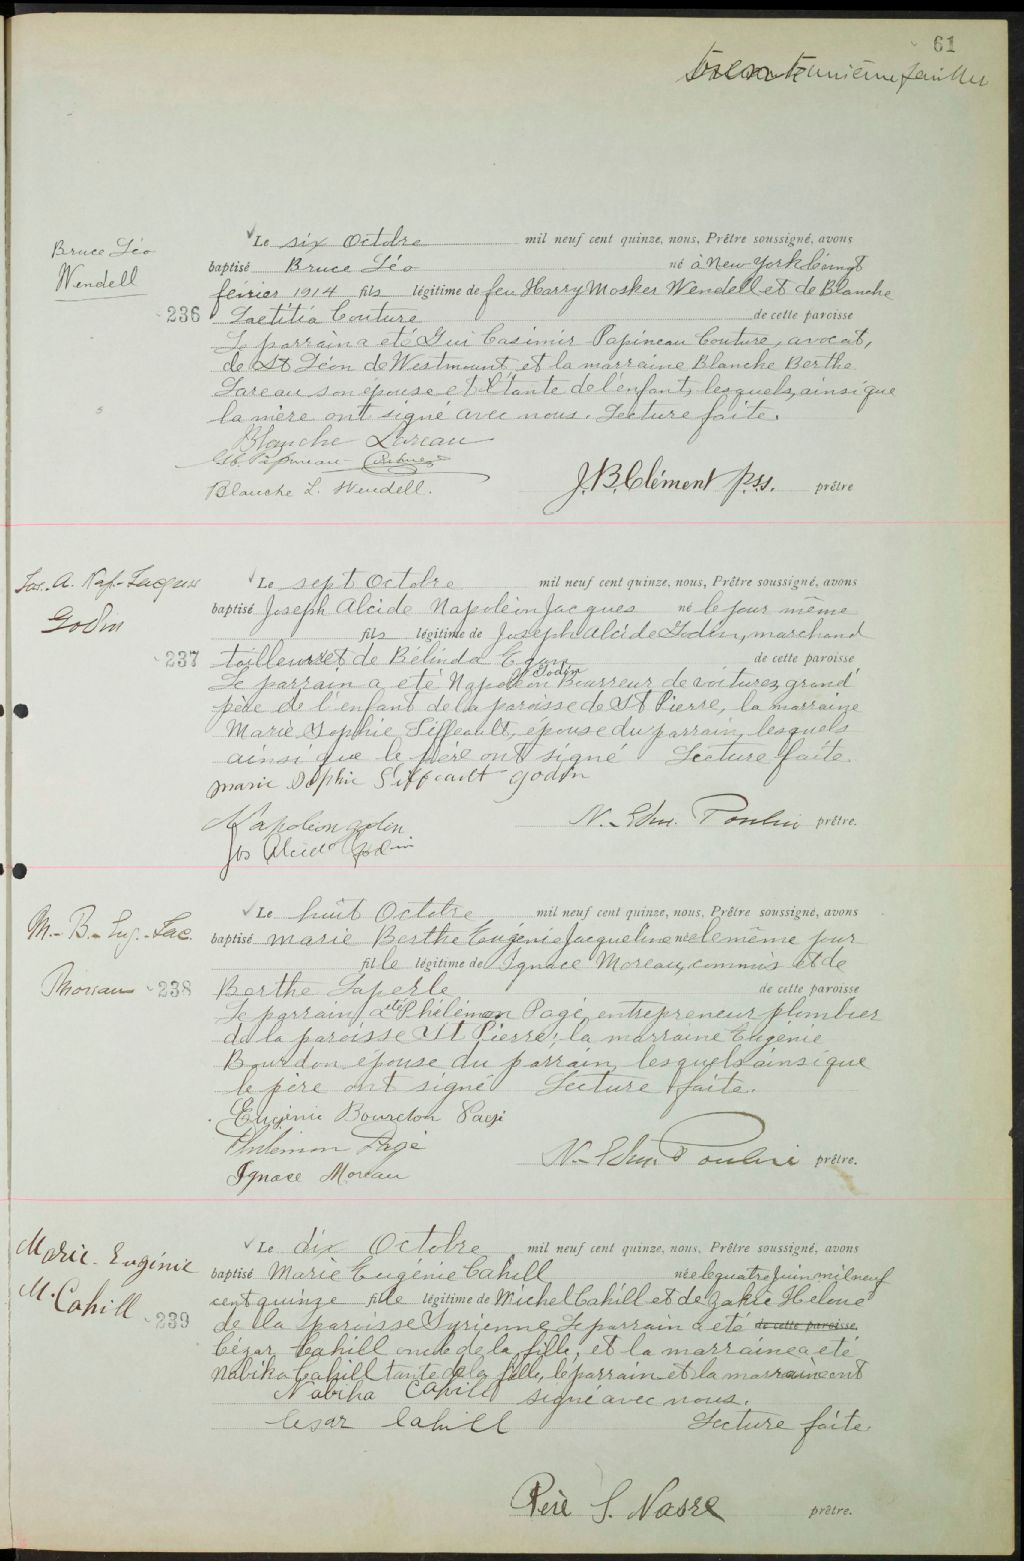 61
trente unième feuillet
Bruce Léo
Wendell
236
Le six Octobre mil neuf cent quinze, nous, Prêtre soussigné, avons
baptisé Bruce Léo né à New York le vingt
février 1914 fils légitime de feu Harry Mosker Wendell et de Blanche
Laetitia Couture de cette paroisse
Le parrain a été Gui Casimir Papineau Couture, avocat,
de St Léon de Westmount et la marraine Blanche Berthe
Lareau son épouse et tante de l'enfant, lesquels, ainsi que
la mère ont signé avec nous. Lecture faite.
Blanche Lareau
Papineau Couture
Blanche L. Wendell.
J. B. Clément p.s.s. prêtre
Jos. A. Nap. Jacques
Godin
237
Le sept Octobre mil neuf cent quinze, nous, Prêtre soussigné, avons
baptisé Joseph Alcide Napoléon Jacques né le jour même
fils légitime de Joseph Alcide Godin, marchand
tailleur et de Bélinda de cette paroisse
Le parrain a été Napoléon Godin Bourreur de voitures, grand
père de l'enfant de la paroisse de St Pierre, la marraine
Marie Sophie Siffeault, épouse du parrain, lesquels
ainsi que le père ont signé Lecture faite.
marie Sophie Siffeault godin
Napoléon godin
Jos Alcide Godin
N. Edm. Poulin prêtre.
M.-B.-Eug.-Jac.
Moreau
238
Le huit Octobre mil neuf cent quinze, nous, Prêtre soussigné, avons
baptisé marie Berthe Eugénie Jacqueline née le même jour
fille légitime de Ignace Moreau, commis et de
Berthe Laperle de cette paroisse
Le parrain a été Philémon Pagé, entrepreneur plombier
de la paroisse St Pierre; la marraine Eugénie
Bourdon épouse du parrain, lesquels ainsi que
le père ont signé Lecture faite.
Eugénie Bourdon Pagé
Philémon Pagé
Ignace Moreau
N. Edm. Poulin prêtre.
Marie-Eugénie
M. Cahill
239
Le dix Octobre mil neuf cent quinze, nous, Prêtre soussigné, avons
baptisé Marie Eugénie Cahill née le quatre Juin mil neuf
cent quinze fille légitime de Michel Cahill et de Zakie Heloue
de la paroisse Syrienne Le parrain a été de cette paroisse.
Cézar Cahill oncle de la fille, et la marraine a été
Nabiha Cahill tante de la fille, le parrain et la marraine ont
Nabiha Cahill signé avec nous.
Cesar Cahill Lecture faite.
Père S. Nasre prêtre.